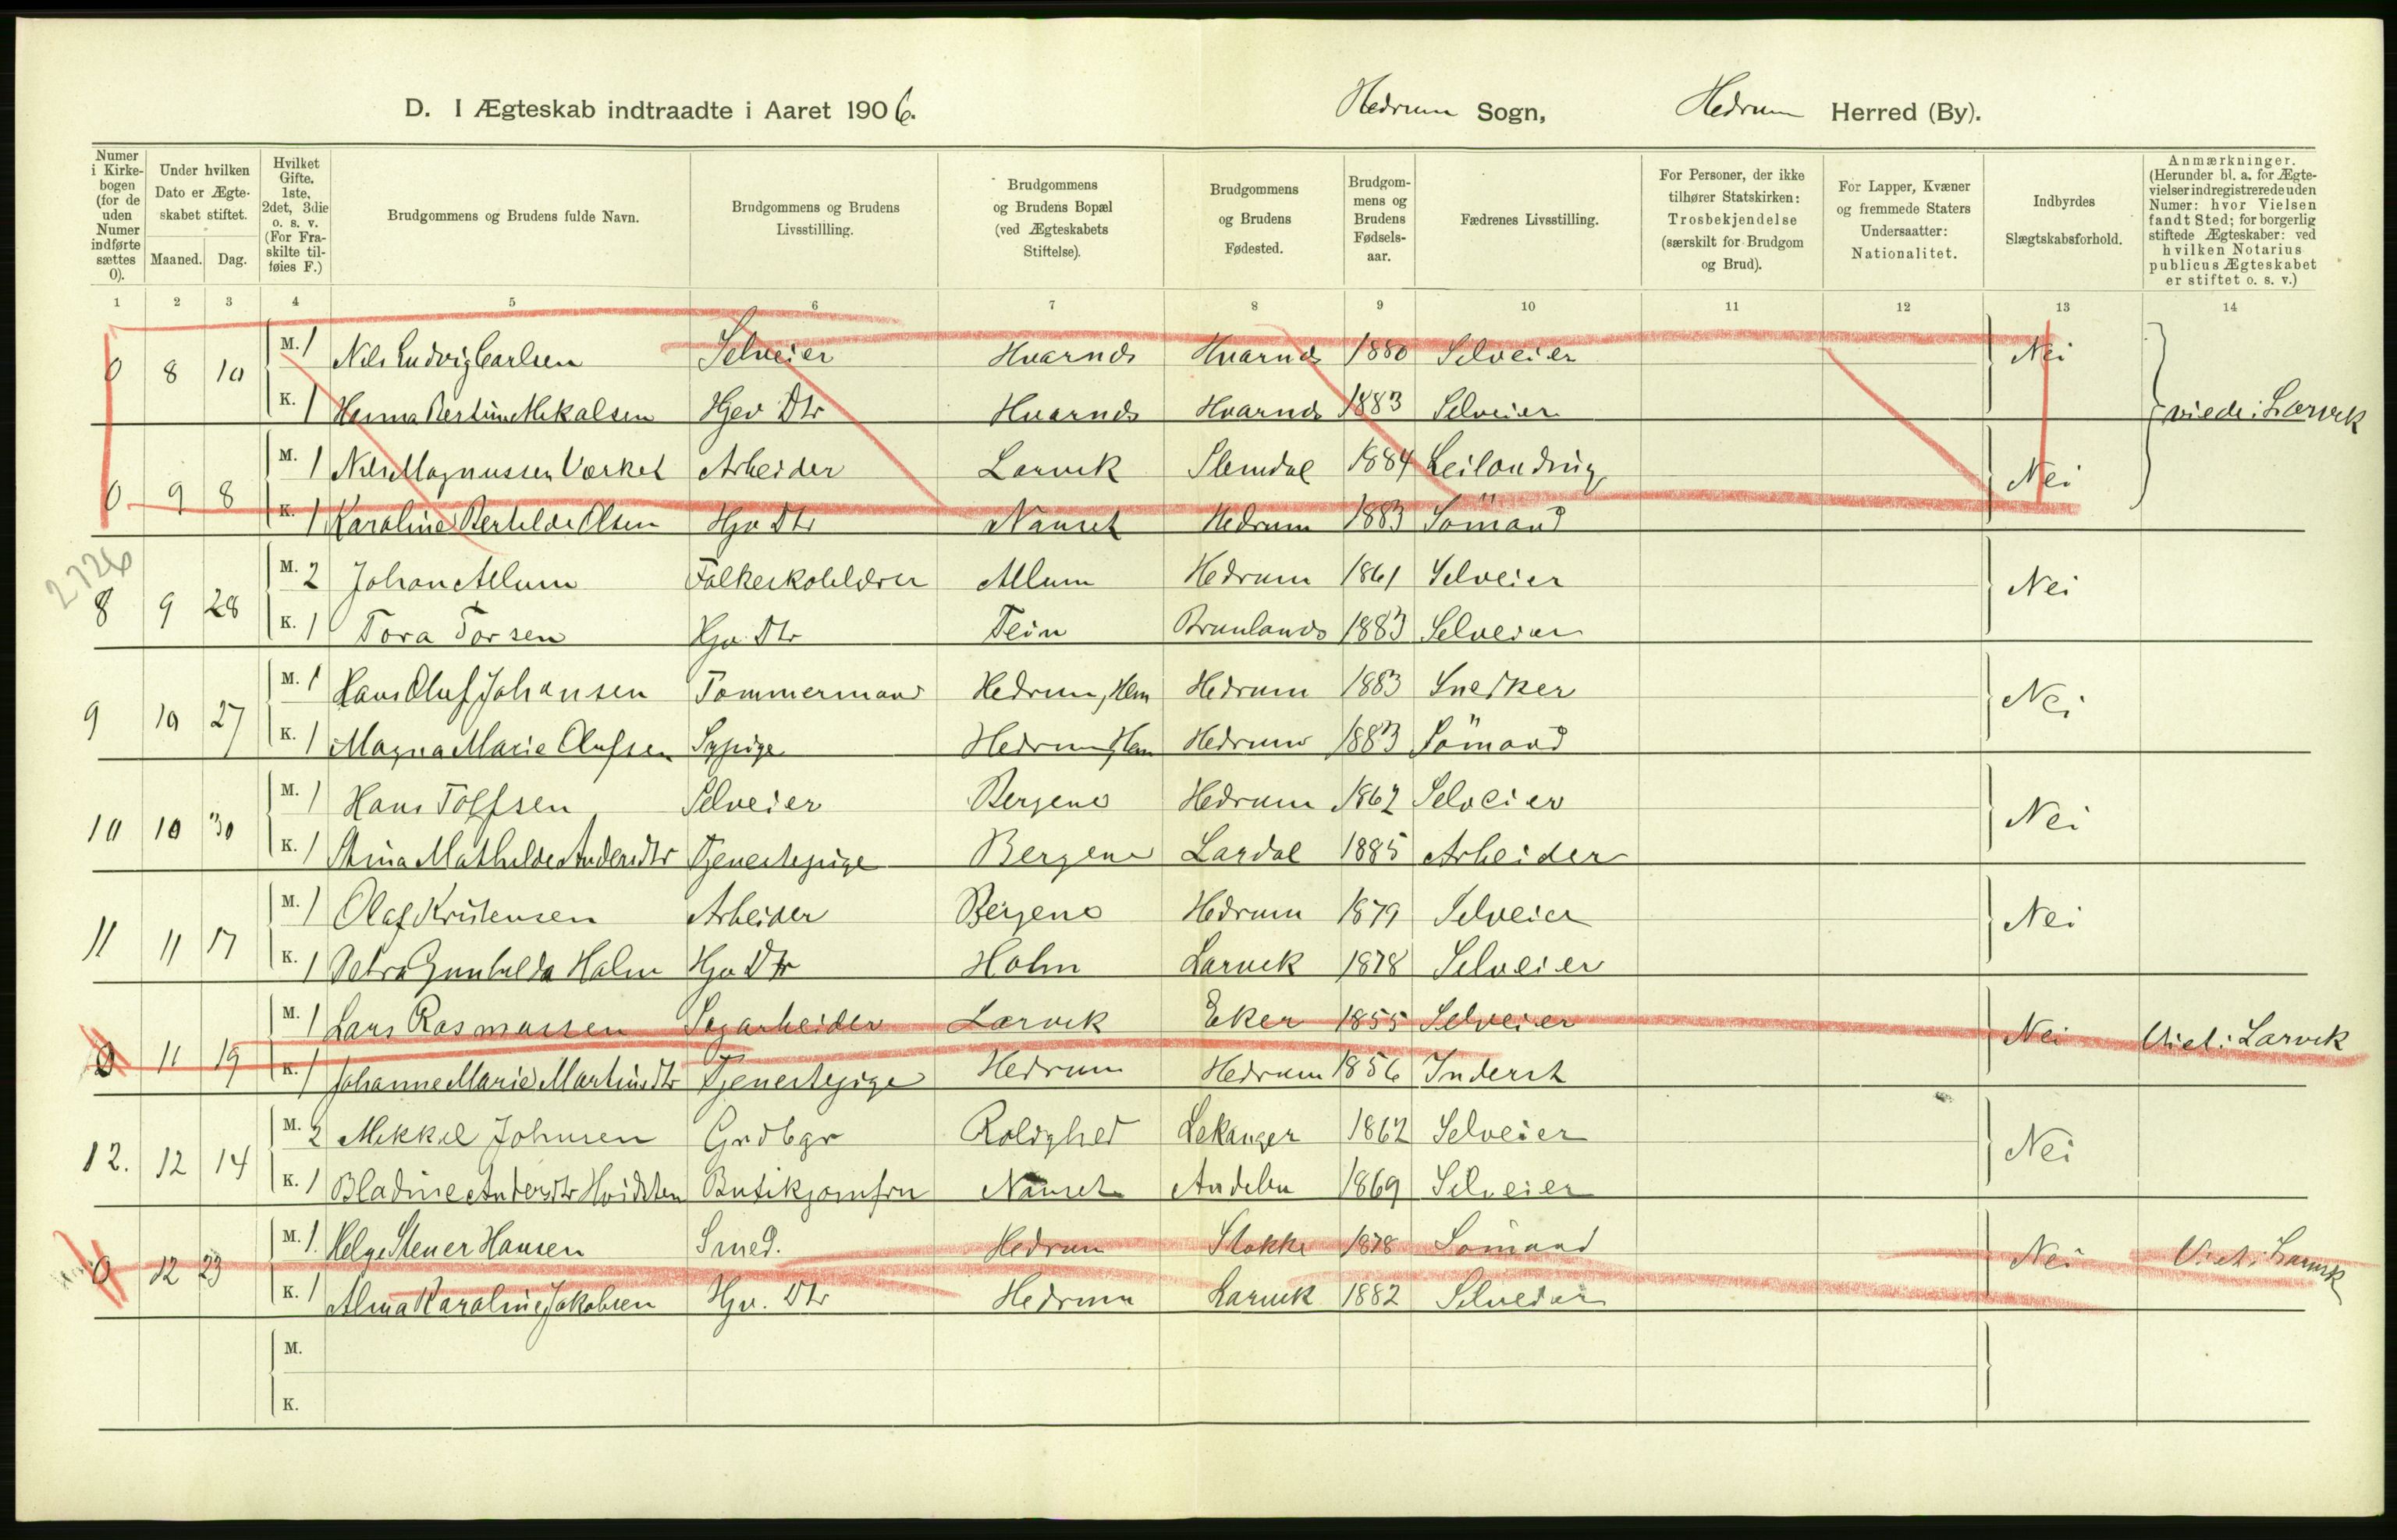 D. I Ægteskab indtraadte i Aaret 1906.
Hedrum Sogn, Hedrum Herred (By).
Numer i Kirkebogen (for de uden Numer indførte sættes 0).
Under hvilken Dato er Ægteskabet stiftet.
Maaned. Dag.
Hvilket Gifte. 1ste, 2det, 3die o. s. v. (For Fraskilte tilføies F.)
Brudgommens og Brudens fulde Navn.
Brudgommens og Brudens Livsstillling.
Brudgommens og Brudens Bopæl (ved Ægteskabets Stiftelse).
Brudgommens og Brudens Fødested.
Brudgommens og Brudens Fødselsaar.
Fædrenes Livsstilling.
For Personer, der ikke tilhører Statskirken: Trosbekjendelse (særskilt for Brudgom og Brud).
For Lapper, Kvæner og fremmede Staters Undersaatter: Nationalitet.
Indbyrdes Slægtskabsforhold.
Anmærkninger. (Herunder bl. a. for Ægtevielser indregistrerede uden Numer: hvor Vielsen fandt Sted; for borgerlig stiftede Ægteskaber: ved hvilken Notarius publicus Ægteskabet er stiftet o. s. v.)
1 2 3 4 5 6 7 8 9 10 11 12 13 14
0 8 10 M. 1 Nils Ludvig Carlsen Selveier Hvarnds Hvarnds 1880 Selveier Nei
K. 1 Mekalsen Hjev Dtr Hvarnds Hvarnds 1883 Selveier viede i Larvik
0 9 8 M. 1 Nils Magnussen Værket Arbeider Larvik Slemdal 1884 Leilending Nei
K. 1 Karoline Berthilde Olsen Hjv Dtr Nanset Hedrum 1883 Sömand
2726
8 9 28 M. 2 Johan Allum Folkeskolelærer Allum Hedrum 1861 Selveier Nei
K. 1 Tora Torsen Hjv. Dtr Tein Brunlanæs 1883 Selveier
9 10 27 M. 1 Hans Oluf Johansen Tømmermand Hedrum, Hem Hedrum 1883 Snedker Nei
K. 1 Magna Marie Olufsen Sypige Hedrum, Hem Hedrum 1883 Sömand
10 10 30 M. 1 Hans Tolfsen Selveier Bergene Hedrum 1862 Selveier Nei
K. 1 Stina Mathilde Andersdtr Tjenestepige Bergene Lardal 1885 Arbeider
11 11 17 M. 1 Olaf Kristensen Arbeider Bergene Hedrum 1879 Selveier Nei
K. 1 Petra Gunhilda Holm Hjv Dtr Holm Larvik 1878 Selveier
0 11 19 M. 1 Lars Rasmussen Sagarbeider Larvik Eker 1855 Selveier Nei Viet i Larvik
K. 1 Johanne Marie Martinsdtr Tjenestepige Hedrum Hedrum 1856 Inderst
12. 12 14 M. 2 Mekkel Johnsen Grdbgr Rolighed Lekanger 1862 Selveier Nei
K. 1 Bladine Andersdtr Hvidsten Butikjomfru Nanset Andebu 1869 Selveier
0 12 23 M. 1. Helge Stener Hansen Smed. Hedrum Stokke 1878 Sömand Nei Viet i Larvik
K. 1 Alma Karoline Jakobsen Hjv. Dtr Hedrum Larvik 1882 Selveier
M.
K.